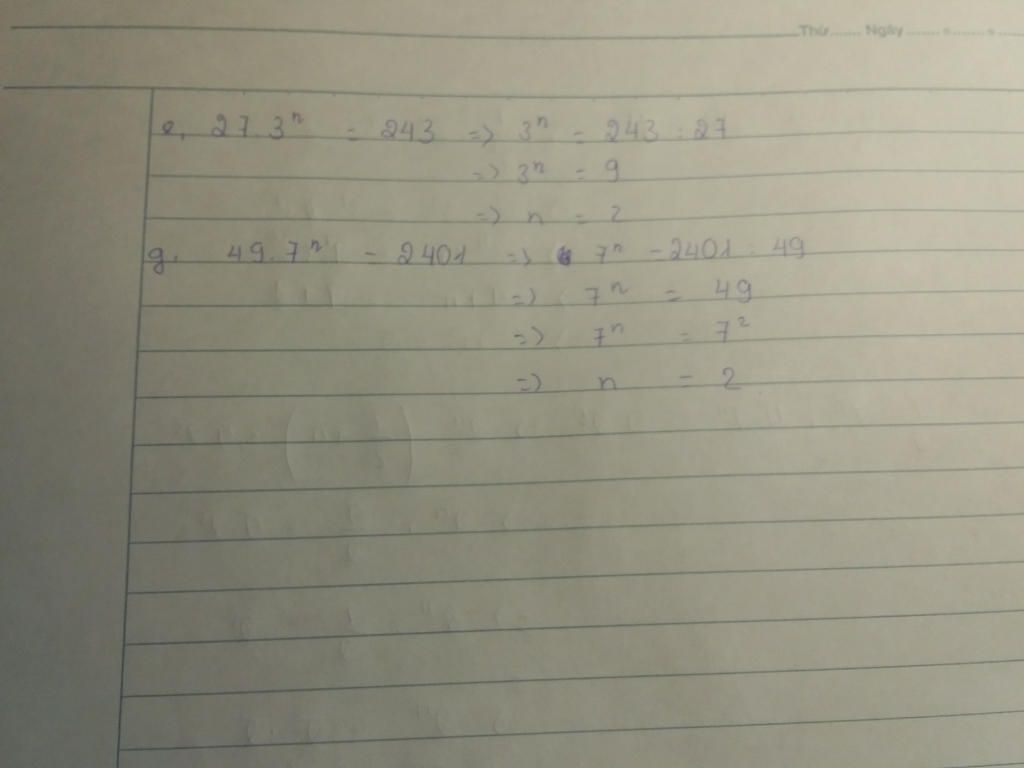 Thứ ....... Ngày ....... - ....... - .......
e, 27.3ⁿ = 243 => 3ⁿ = 243 : 27
=> 3ⁿ = 9
=> n = 2
g. 49.7ⁿ = 2401 => 7ⁿ = 2401 : 49
=> 7ⁿ = 49
=> 7ⁿ = 7²
=> n = 2